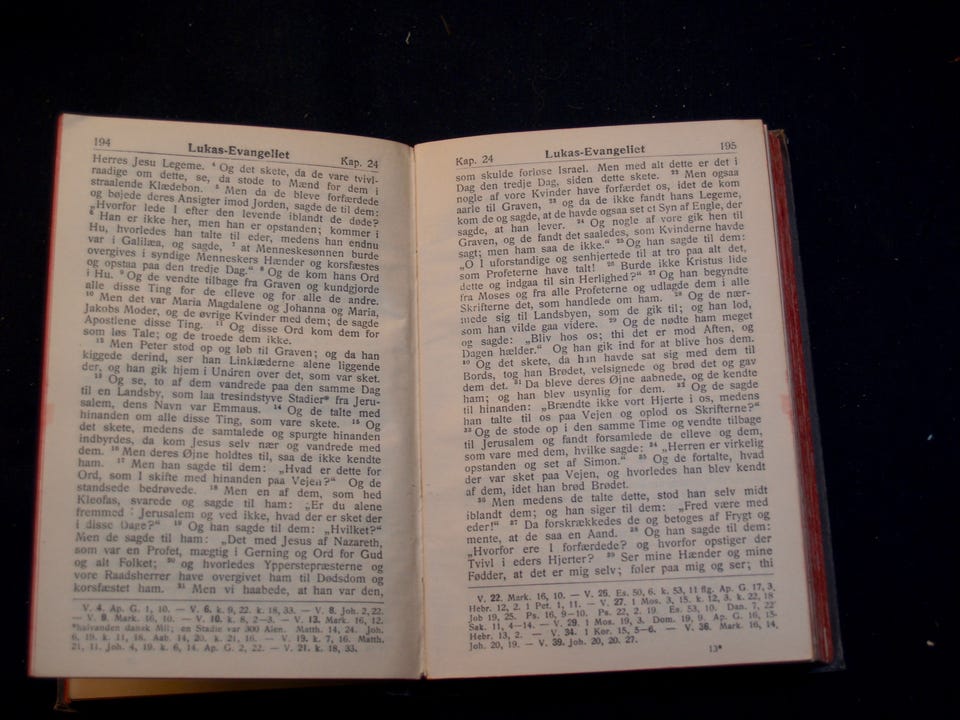 194
Lukas-Evangeliet
Kap. 24
Herres Jesu Legeme. ⁴ Og det skete, da de vare tvivl-
raadige om dette, se, da stode to Mænd for dem i
straalende Klædebon. ⁵ Men da de bleve forfærdede
og bøjede deres Ansigter imod Jorden, sagde de til dem:
„Hvorfor lede I efter den levende iblandt de døde?
⁶ Han er ikke her, men han er opstanden; kommer i
Hu, hvorledes han talte til eder, medens han endnu
var i Galilæa, og sagde, ⁷ at Menneskesønnen burde
overgives i syndige Menneskers Hænder og korsfæstes
og opstaa paa den tredje Dag.“ ⁸ Og de kom hans Ord
i Hu. ⁹ Og de vendte tilbage fra Graven og kundgjorde
alle disse Ting for de elleve og for alle de andre.
¹⁰ Men det var Maria Magdalene og Johanna og Maria,
Jakobs Moder, og de øvrige Kvinder med dem; de sagde
Apostlene disse Ting. ¹¹ Og disse Ord kom dem for
som løs Tale; og de troede dem ikke.
¹² Men Peter stod op og løb til Graven; og da han
kiggede derind, ser han Linklæderne alene liggende
der, og han gik hjem i Undren over det, som var sket.
¹³ Og se, to af dem vandrede paa den samme Dag
til en Landsby, som laa tresindstyve Stadier* fra Jeru-
salem, dens Navn var Emmaus. ¹⁴ Og de talte med
hinanden om alle disse Ting, som vare skete. ¹⁵ Og
det skete, medens de samtalede og spurgte hinanden
indbyrdes, da kom Jesus selv nær og vandrede med
dem. ¹⁶ Men deres Øjne holdtes til, saa de ikke kendte
ham. ¹⁷ Men han sagde til dem: „Hvad er dette for
Ord, som I skifte med hinanden paa Vejen?“ Og de
standsede bedrøvede. ¹⁸ Men en af dem, som hed
Kleofas, svarede og sagde til ham: „Er du alene
fremmed i Jerusalem og ved ikke, hvad der er sket der
i disse Dage?“ ¹⁹ Og han sagde til dem: „Hvilket?“
Men de sagde til ham: „Det med Jesus af Nazareth,
som var en Profet, mægtig i Gerning og Ord for Gud
og alt Folket; ²⁰ og hvorledes Ypperstepræsterne og
vore Raadsherrer have overgivet ham til Dødsdom og
korsfæstet ham. ²¹ Men vi haabede, at han var den,
V. 4. Ap. G. 1, 10. — V. 6. k. 9, 22. k. 18, 33. — V. 8. Joh. 2, 22.
— V. 9. Mark. 16, 10. — V. 10. k. 8, 2—3. — V. 13. Mark. 16, 12.
*halvanden dansk Mil; en Stadie var 300 Alen. Matth. 14, 24. Joh.
6, 19. k. 11, 18. Aab. 14, 20. k. 21, 16. — V. 19. k. 7, 16. Matth.
21, 11. Joh. 4, 19. k. 6, 14. Ap. G. 2, 22. — V. 21. k. 18, 33.
Kap. 24
Lukas-Evangeliet
195
som skulde forløse Israel. Men med alt dette er det i
Dag den tredje Dag, siden dette skete. ²² Men ogsaa
nogle af vore Kvinder have forfærdet os, idet de kom
aarle til Graven, ²³ og da de ikke fandt hans Legeme,
kom de og sagde, at de havde ogsaa set et Syn af Engle, der
sagde, at han lever. ²⁴ Og nogle af vore gik hen til
Graven, og de fandt det saaledes, som Kvinderne havde
sagt; men ham saa de ikke.“ ²⁵ Og han sagde til dem:
„O I uforstandige og senhjertede til at tro paa alt det,
som Profeterne have talt! ²⁶ Burde ikke Kristus lide
dette og indgaa til sin Herlighed?“ ²⁷ Og han begyndte
fra Moses og fra alle Profeterne og udlagde dem i alle
Skrifterne det, som handlede om ham. ²⁸ Og de nær-
mede sig til Landsbyen, som de gik til; og han lod,
som han vilde gaa videre. ²⁹ Og de nødte ham meget
og sagde: „Bliv hos os; thi det er mod Aften, og
Dagen hælder.“ Og han gik ind for at blive hos dem.
³⁰ Og det skete, da han havde sat sig med dem til
Bords, tog han Brødet, velsignede og brød det og gav
dem det. ³¹ Da bleve deres Øjne aabnede, og de kendte
ham; og han blev usynlig for dem. ³² Og de sagde
til hinanden: „Brændte ikke vort Hjerte i os, medens
han talte til os paa Vejen og oplod os Skrifterne?“
³³ Og de stode op i den samme Time og vendte tilbage
til Jerusalem og fandt forsamlede de elleve og dem,
som vare med dem, hvilke sagde: ³⁴ „Herren er virkelig
opstanden og set af Simon.“ ³⁵ Og de fortalte, hvad
der var sket paa Vejen, og hvorledes han blev kendt
af dem, idet han brød Brødet.
³⁶ Men medens de talte dette, stod han selv midt
iblandt dem; og han siger til dem: „Fred være med
eder!“ ³⁷ Da forskrækkedes de og betoges af Frygt og
mente, at de saa en Aand. ³⁸ Og han sagde til dem:
„Hvorfor ere I forfærdede? og hvorfor opstiger der
Tvivl i eders Hjerter? ³⁹ Ser mine Hænder og mine
Fødder, at det er mig selv; føler paa mig og ser; thi
V. 22. Mark. 16, 10. — V. 26. Es. 50, 6. k. 53, 11 flg. Ap. G. 17, 3.
Hebr. 12, 2. 1 Pet. 1, 11. — V. 27. 1 Mos. 3, 15. k. 12, 3. k. 22, 18
Job 19, 25. Ps. 16, 9—10. Ps. 22, 2. 19. Es. 53, 10. Dan. 7, 22
Sak. 11, 4—14. — V. 29. 1 Mos. 19, 3. Dom. 19, 9. Ap. G. 16, 15
Hebr. 13, 2. — V. 34. 1 Kor. 15, 5—6. — V. 36. Mark. 16, 14,
Joh. 20, 19. — V. 39. Joh. 20, 20. 27.
13*